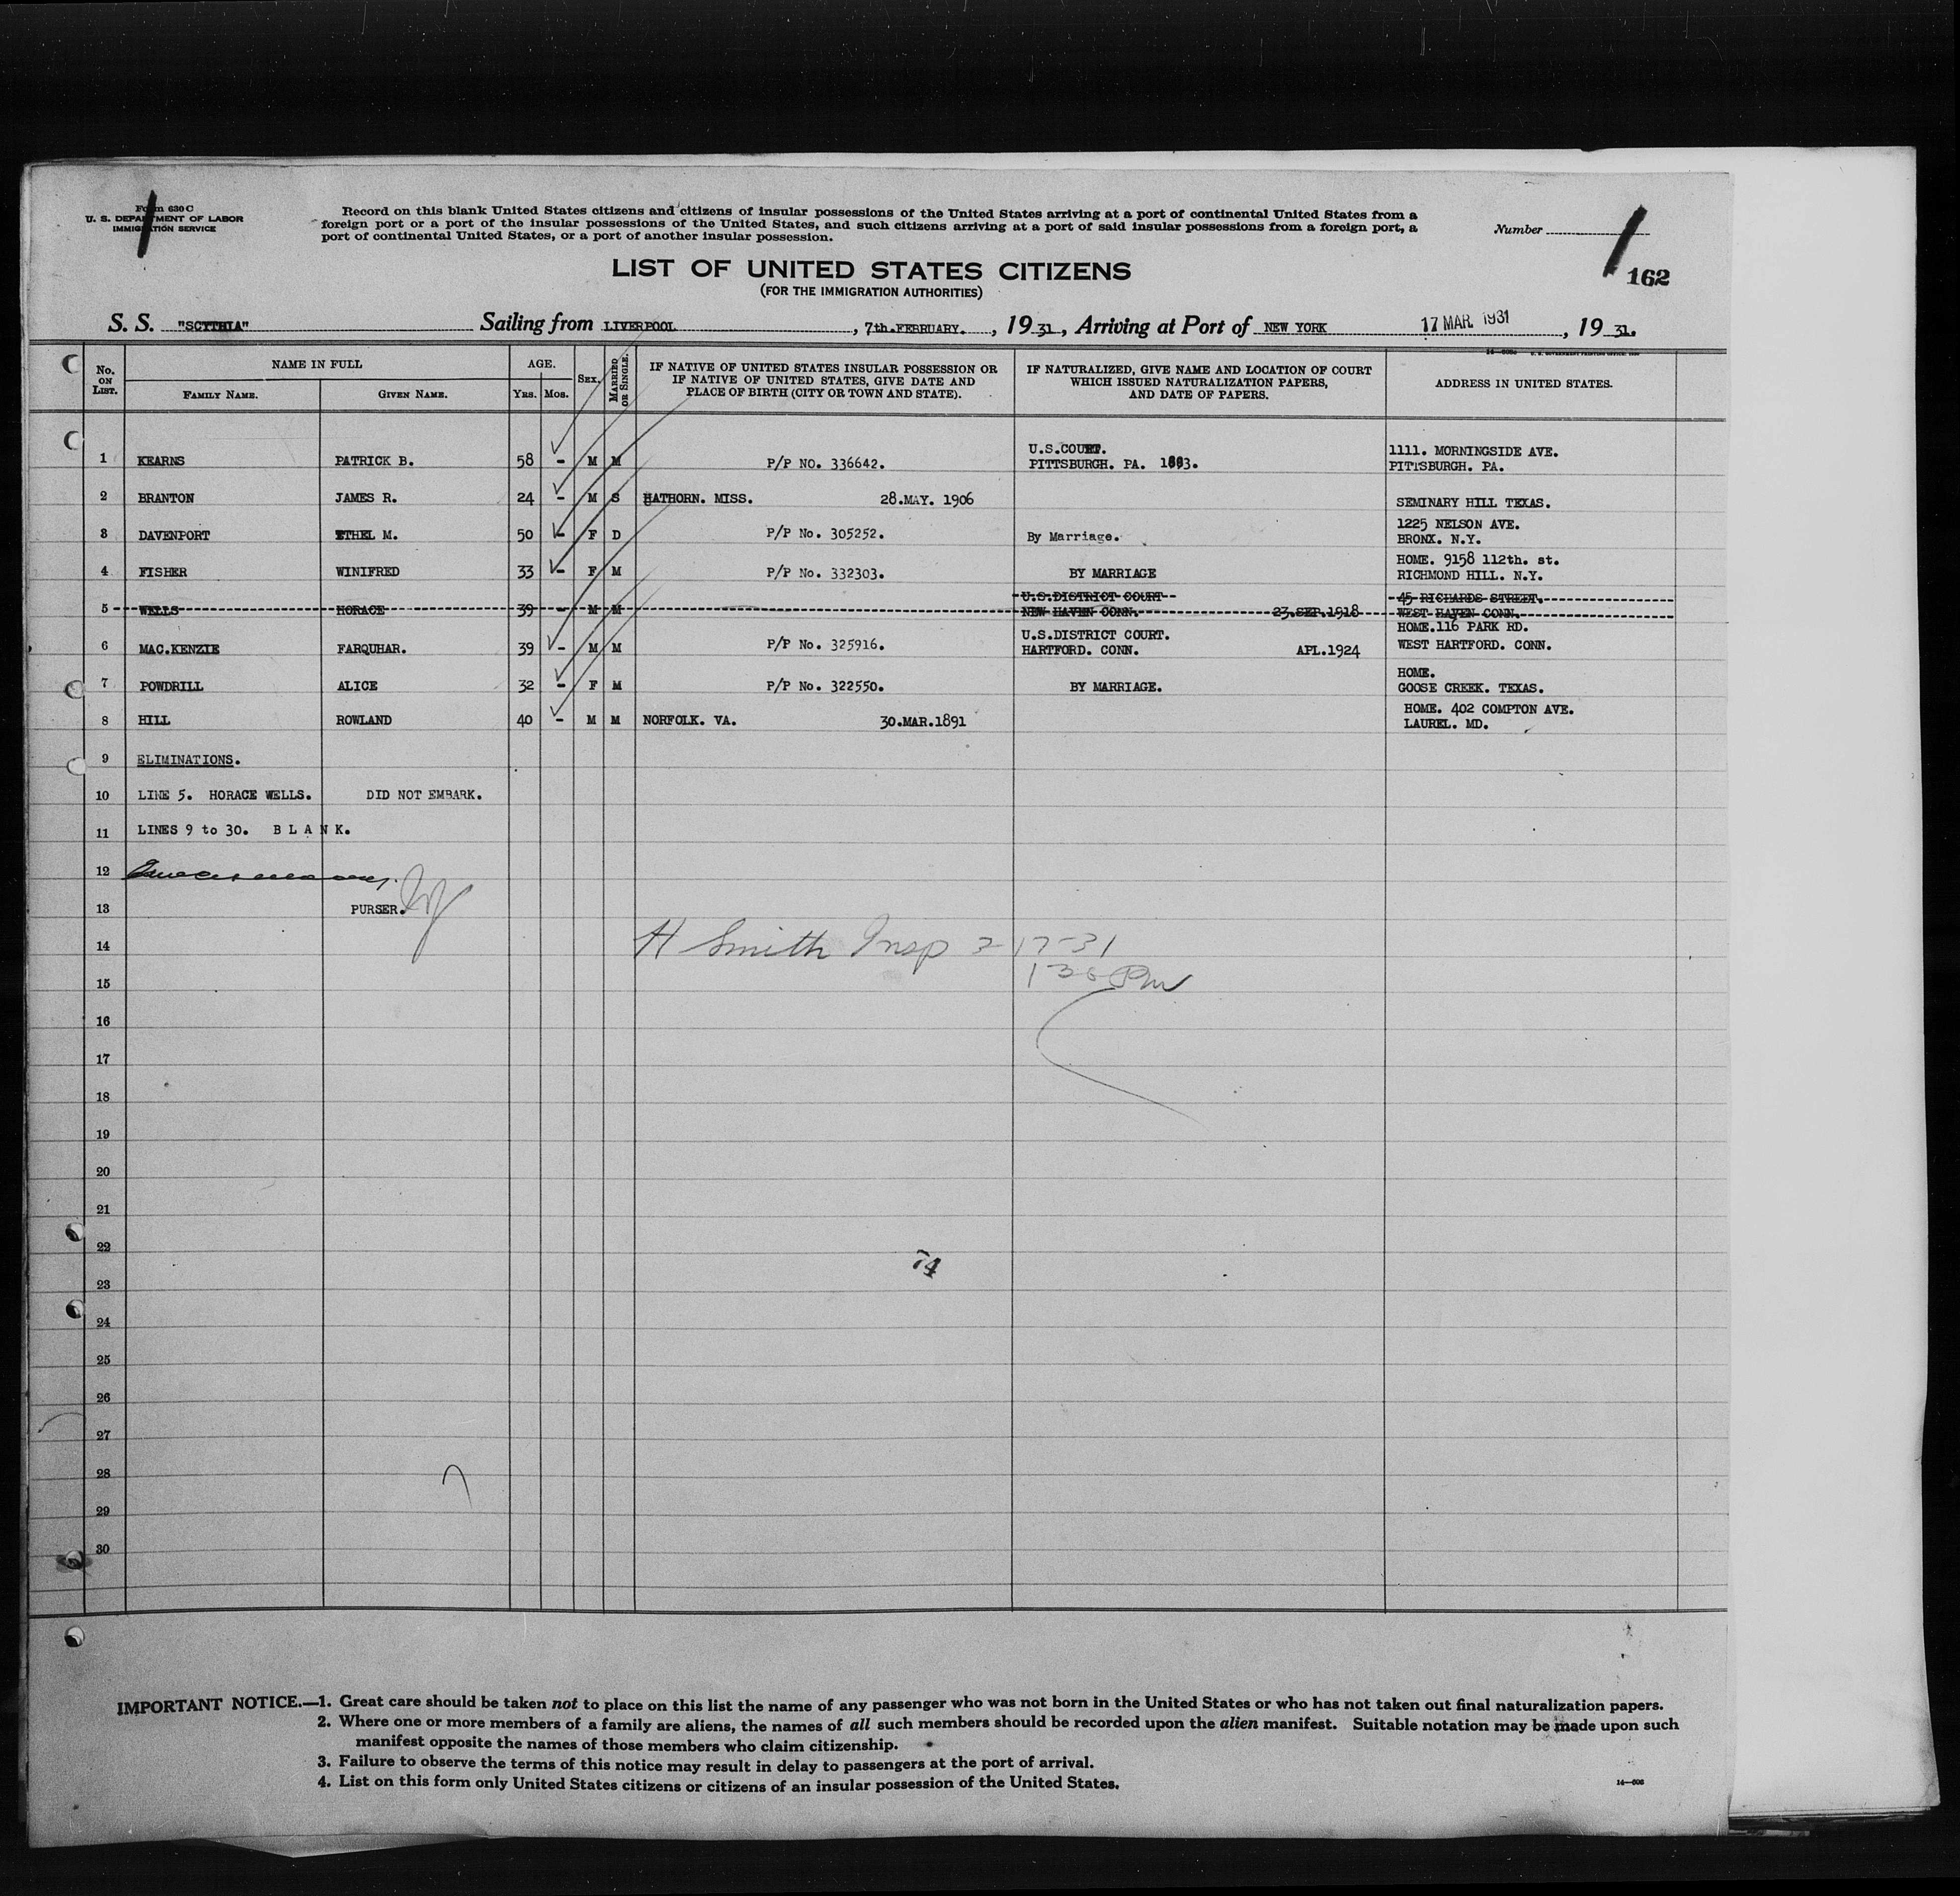 Form 630 C
U. S. DEPARTMENT OF LABOR
IMMIGRATION SERVICE
Record on this blank United States citizens and citizens of insular possessions of the United States arriving at a port of continental United States from a
foreign port or a port of the insular possessions of the United States, and such citizens arriving at a port of said insular possessions from a foreign port, a
port of continental United States, or a port of another insular possession.
Number
162
LIST OF UNITED STATES CITIZENS
(FOR THE IMMIGRATION AUTHORITIES)
S. S. "SCYTHIA" Sailing from LIVERPOOL, 7th.FEBRUARY., 1931, Arriving at Port of NEW YORK 17 MAR. 1931, 1931.
No. ON LIST. NAME IN FULL FAMILY NAME. GIVEN NAME. AGE. YRS. MOS. SEX. MARRIED OR SINGLE. IF NATIVE OF UNITED STATES INSULAR POSSESSION OR IF NATIVE OF UNITED STATES, GIVE DATE AND PLACE OF BIRTH (CITY OR TOWN AND STATE). IF NATURALIZED, GIVE NAME AND LOCATION OF COURT WHICH ISSUED NATURALIZATION PAPERS, AND DATE OF PAPERS. ADDRESS IN UNITED STATES.
1 KEARNS PATRICK B. 58 - M M P/P NO. 336642. U.S.COURT. PITTSBURGH. PA. 1893. 1111. MORNINGSIDE AVE. PITTSBURGH. PA.
2 BRANTON JAMES R. 24 - M S HATHORN. MISS. 28.MAY. 1906 SEMINARY HILL TEXAS.
3 DAVENPORT ETHEL M. 50 - F D P/P No. 305252. By Marriage. 1225 NELSON AVE. BRONX. N.Y.
4 FISHER WINIFRED 33 - F M P/P No. 332303. BY MARRIAGE HOME. 9158 112th. st. RICHMOND HILL. N.Y.
5 WELLS HORACE 39 - M M U.S.DISTRICT COURT NEW HAVEN CONN. 23.SEP.1918 45 RICHARDS STREET. WEST HAVEN CONN.
6 MAC.KENZIE FARQUHAR. 39 - M M P/P No. 325916. U.S.DISTRICT COURT. HARTFORD. CONN. APL.1924 HOME.116 PARK RD. WEST HARTFORD. CONN.
7 POWDRILL ALICE 32 - F M P/P No. 322550. BY MARRIAGE. HOME. GOOSE CREEK. TEXAS.
8 HILL ROWLAND 40 - M M NORFOLK. VA. 30.MAR.1891 HOME. 402 COMPTON AVE. LAUREL. MD.
9 ELIMINATIONS.
10 LINE 5. HORACE WELLS. DID NOT EMBARK.
11 LINES 9 to 30. B L A N K.
12
13 PURSER.
14 H Smith Insp 3-17-31
15 130 PM
16
17
18
19
20
21
22
74
23
24
25
26
27
28
29
30
IMPORTANT NOTICE.—1. Great care should be taken not to place on this list the name of any passenger who was not born in the United States or who has not taken out final naturalization papers.
2. Where one or more members of a family are aliens, the names of all such members should be recorded upon the alien manifest. Suitable notation may be made upon such
manifest opposite the names of those members who claim citizenship.
3. Failure to observe the terms of this notice may result in delay to passengers at the port of arrival.
4. List on this form only United States citizens or citizens of an insular possession of the United States.